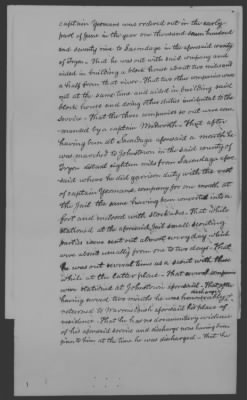 captain Yeomans was ordered out in the early
part of June in the year one thousand seven hundred
and seventy nine to Sacondaga in the aforesaid county
of Tryon. That he was out with said company and
aided in building a block house about two miles and
a half from that river. That two other companies were
out at the same time and aided in building said
block house and doing other duties incidental to the
service. That the three companies so out were com-
manded by a captain. That after
having been at Sacondaga aforesaid a month he
was marched to Johnstown in the said county of
Tryon about eighteen miles from Sacondaga afore
said where he did garrison duty with the rest
of captain Yeomans company for one month at
the jail the same having been converted into a
fort and enclosed with stockades. That while
stationed at the aforesaid jail small scouting
parties were sent out almost every day which
were absent usually from one to two days. That
he was out several times as a scout with these
while at the latter place. That several companies
were stationed at Johnstown aforesaid. That after
having served two months he was honourably discharged
returned to aforesaid his place of
residence. That he has no documentary evidence
of his aforesaid service and discharge none having been
given to him at the time he was discharged. That he